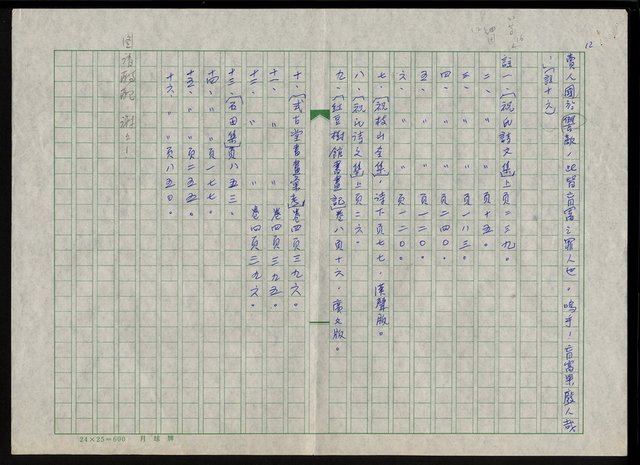 12.
賣人圖於與歟，此皆盲富之罪人也。嗚乎！盲富果殿人哉
！〔註十六〕
註一、〔祝氏詩文集〕上頁二三九。
二、〃 〃 頁十五。
三、〃 〃 頁一八三。
四、〃 〃 頁二四〇。
五、〃 〃 頁一二〇。
六、〃 〃 頁一二〇。
七、〔祝枝山全集，詩下頁七七，漢聲版。
八、〔祝氏詩文集〕上頁二六。
九、〔紅豆樹館書畫記〕卷八頁十六，廣文版。
十、〔式古堂書畫彙考〕卷四頁三九六。
十一、〃 〃 卷四頁三九五。
十二、〃 〃 卷四頁三九六。
十三、〔石田集〕頁八五三。
十四、〃 〃 頁一七七。
十五、〃 〃 頁八五五。
十六、〃 〃 頁八五〇。
24×25=600 月球牌